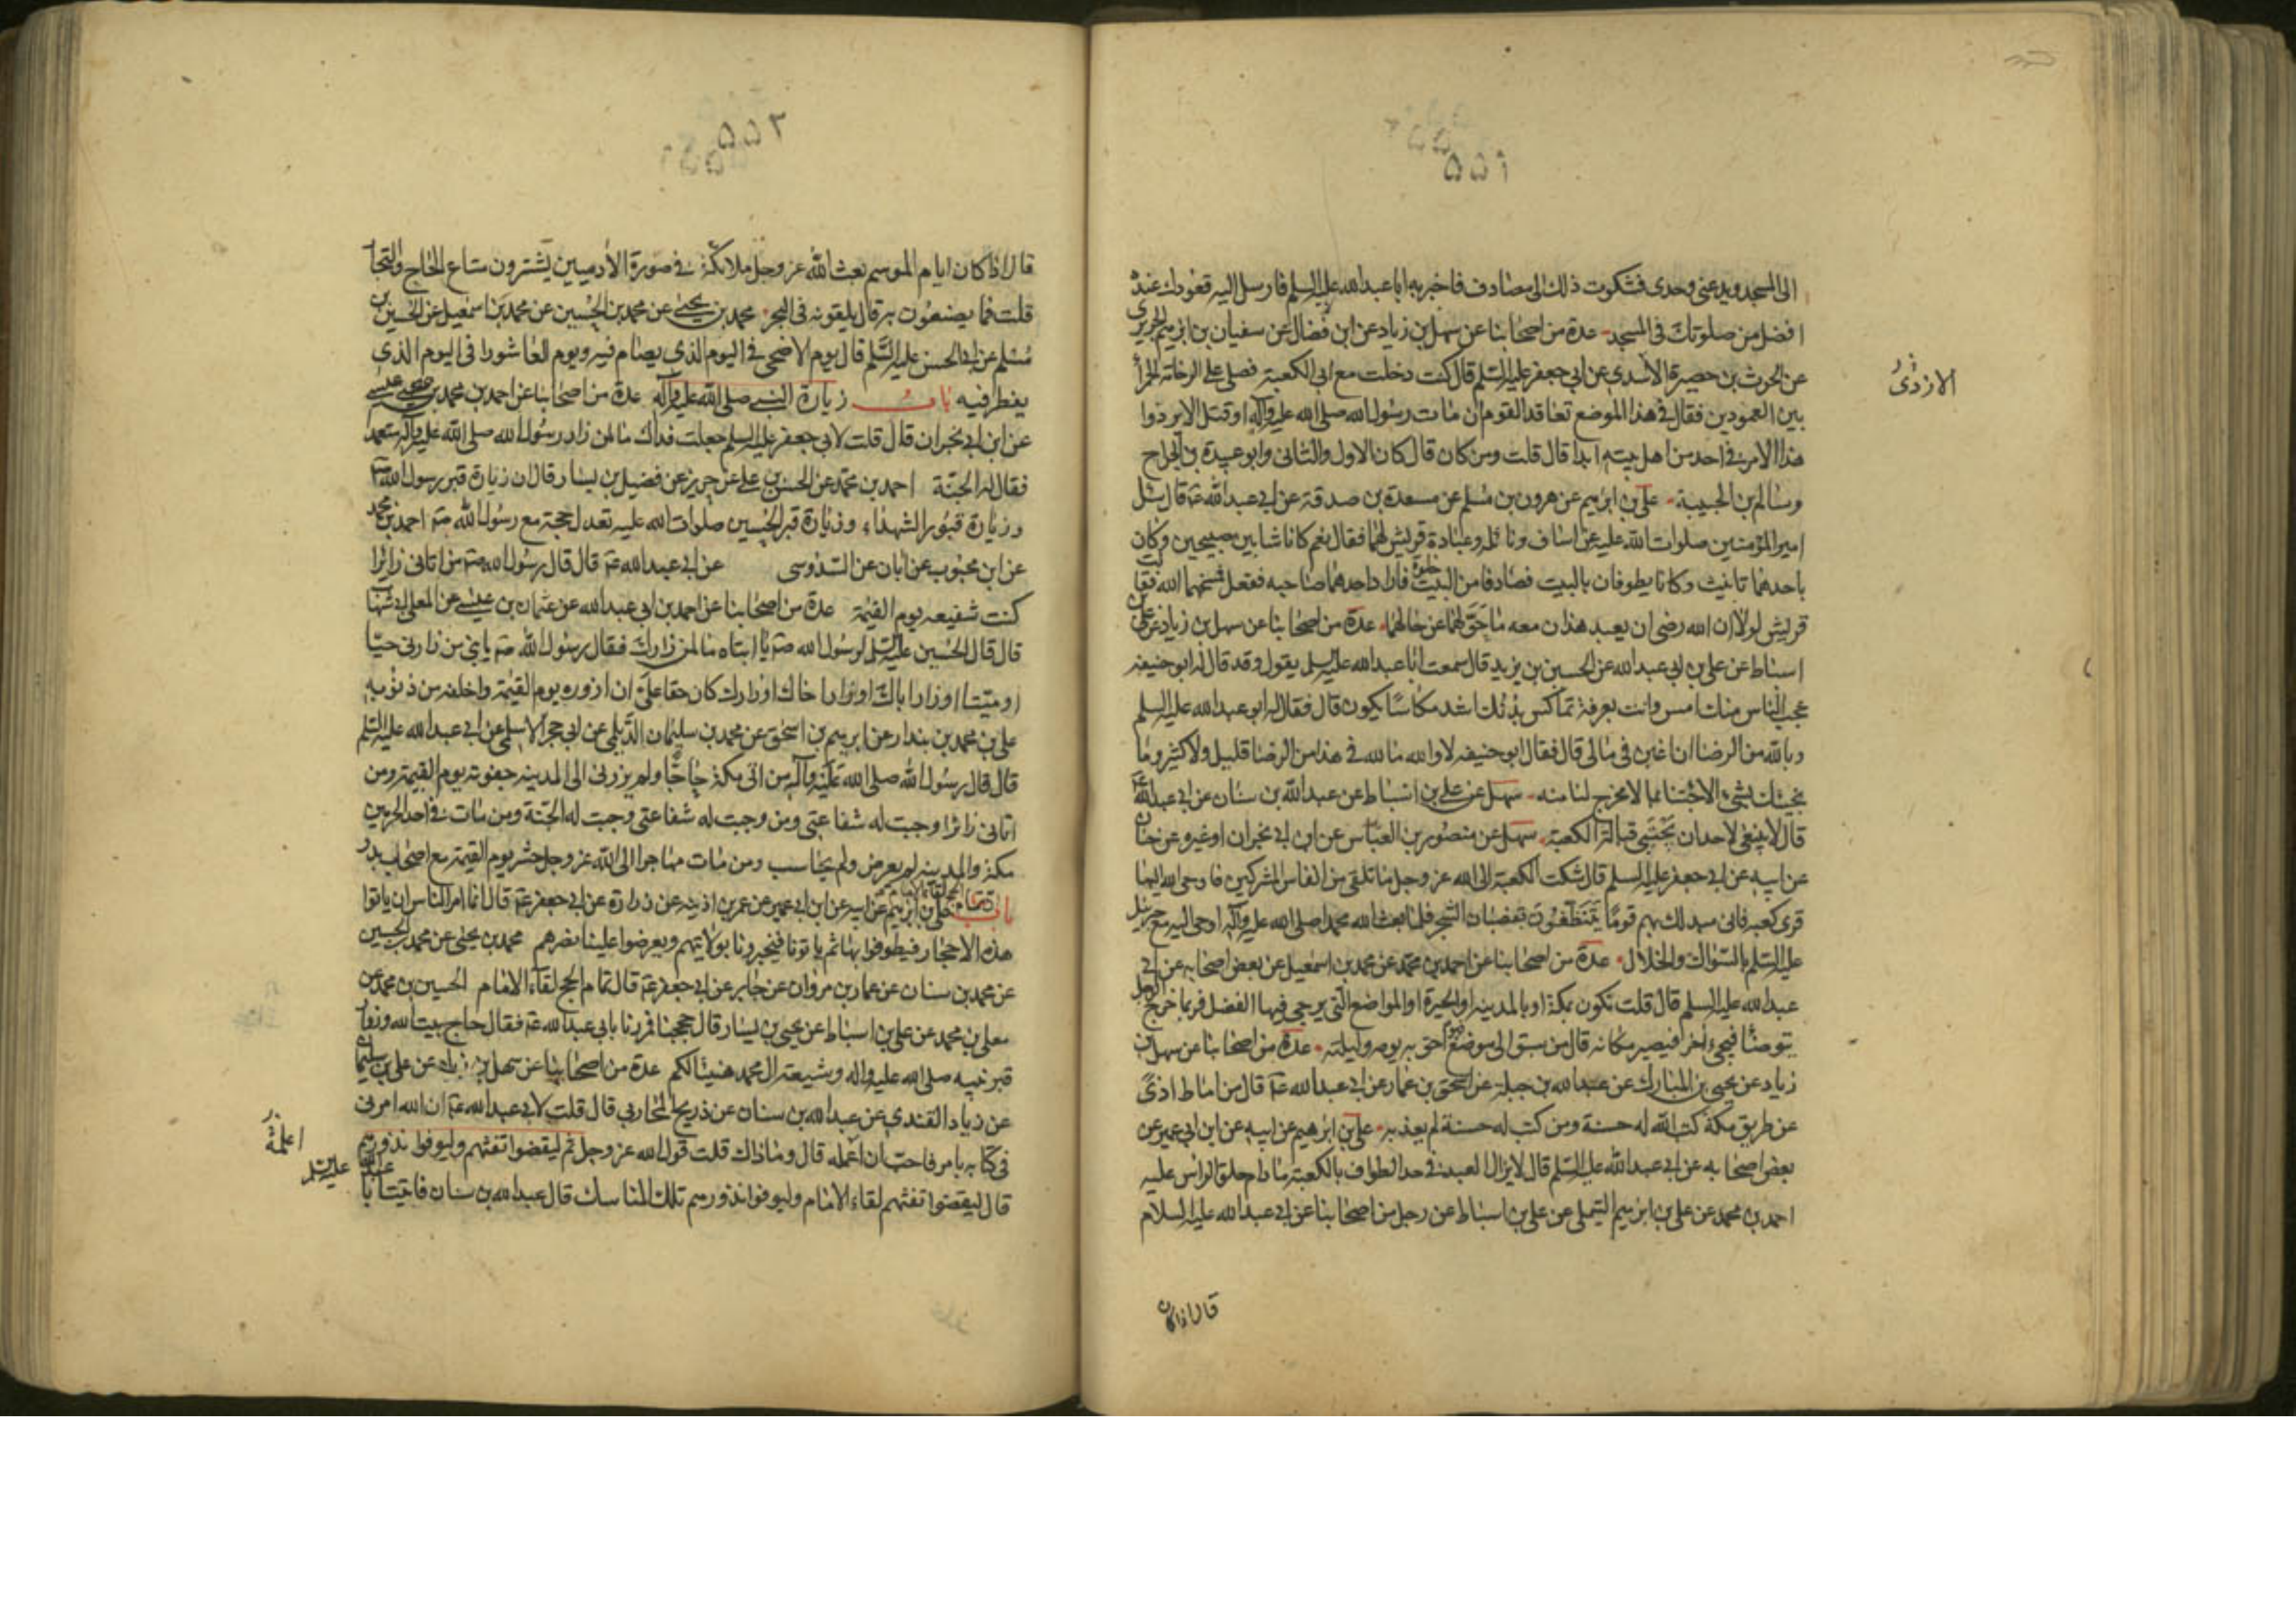 ٥٥١
الى المسجد ويدعنى وحدى فشكوت ذلك الى مصادف فاخبر به ابا عبدالله عليه السلم فارسل اليه قعودك عنده
افضل من صلوتك فى المسجد عدة من اصحابنا عن سهل بن زياد عن ابن فضال عن سفيان بن ابرهيم الحريرى
عن الحرث بن حصيرة الاسدى عن ابى جعفر عليه السلم قال كنت دخلت مع ابى الكعبة فصلى على الرخامة الحمرا
الازدى
بين العمودين فقال فى هذا الموضع تعاقد القوم ان مات رسول الله صلى الله عليه وآله او قتل الا يردوا
هذا الامر فى احد من اهل بيته ابدا قال قلت ومن كان قال كان الاول والثانى وابو عبيدة بن الجراح
وسالم بن الحبيبة على بن ابرهيم عن هرون بن مسلم عن مسعدة بن صدقة عن ابى عبدالله عه قال سئل
امير المؤمنين صلوات الله عليه عن اساف ونائله وعبادة قريش لهما فقال نعم كانا شابين صبيحين وكان
باحدهما تانيث وكانا يطوفان بالبيت فصادفا من البيت خلوة فاراد احدهما صاحبه ففعل فمسخهما الله فقالت
قريش لولا ان الله رضى ان يعبد هذان معه ما حولهما عن حالهما عدة من اصحابنا عن سهل بن زياد عن على بن
اسباط عن على بن ابى عبدالله عن الحسين بن يزيد قال سمعت ابا عبدالله عليه السلم يقول وقد قال له ابو حنيفه
عجب الناس منك امس وانت بعرفة تماكس ببدنك اشد مكاسا يكون قال فقال له ابو عبدالله عليه السلم
وما لله من الرضا ان اغبن فى مالى قال فقال ابو حنيفه لا والله ما لله فى هذا من الرضا قليل ولا كثير وما
نجيئك بشئ الا جئتنا بما لا مخرج لنا منه سهل عن على بن اسباط عن عبدالله بن سنان عن ابى عبدالله عه
قال لا ينبغى لاحد ان يحتبى قبالة الكعبة سهل عن منصور بن العباس عن ابن ابى نجران او غيره عن حنان
عن ابيه عن ابى جعفر عليه السلم قال شكت الكعبة الى الله عز وجل ما تلقى من انفاس المشركين فاوحى الله اليها
قرى كعبه فانى مبدلك بهم قوما يتنظفون بقضبان الشجر فلما بعث الله محمدا صلى الله عليه وآله اوحى اليه مع جبرئيل
عليه السلم بالسواك والخلال عدة من اصحابنا عن احمد بن محمد عن محمد بن اسمعيل عن بعض اصحابه عن ابى
عبدالله عليه السلم قال قلت نكون بمكة او بالمدينه او الحيرة او المواضع التى يرجى فيها الفضل فربما خرج الرجل
يتوضا فيجئ آخر فيصير مكانه قال من سبق الى موضع فهو احق به يومه وليلته عدة من اصحابنا عن سهل بن
زياد عن يحيى بن المبارك عن عبدالله بن جبلة عن اسحق بن عمار عن ابى عبدالله عه قال من اماط اذى
عن طريق مكة كتب الله له حسنة ومن كتب له حسنة لم يعذبه على بن ابرهيم عن ابيه عن ابن ابى عمير عن
بعض اصحابه عن ابى عبدالله عليه السلم قال لا يزال العبد فى حد الطواف بالكعبة ما دام حلق الراس عليه
احمد بن محمد عن على بن ابرهيم التيملى عن على بن اسباط عن رجل من اصحابنا عن ابى عبدالله عليه السلام
قال اذا كان
٥٥٢
قال اذا كان ايام الموسم بعث الله عز وجل ملائكة فى صورة الادميين يشترون متاع الحاج والتجار
قلت فما يصنعون به قال يلقونه فى البحر محمد بن يحيى عن محمد بن الحسين عن محمد بن اسمعيل عن الحسين بن
مسلم عن ابى الحسن عليه السلم قال يوم الاضحى فى اليوم الذى يصام فيه ويوم العاشورا فى اليوم الذى
يفطر فيه باب زيارة النبى صلى الله عليه وآله عدة من اصحابنا عن احمد بن محمد بن عيسى
عن ابن ابى نجران قال قلت لابى جعفر عليه السلم جعلت فداك ما لمن زار رسول الله صلى الله عليه وآله متعمدا
فقال له الجنة احمد بن محمد عن الحسن بن على عن حريز عن فضيل بن يسار قال ان زيارة قبر رسول الله صه
وزيارة قبور الشهداء وزيارة قبر الحسين صلوات الله عليه تعدل حجة مع رسول الله صه احمد بن محمد
عن ابن محبوب عن ابان عن السدوسى عن ابى عبدالله عه قال قال رسول الله صه من اتانى زائرا
كنت شفيعه يوم القيمة عدة من اصحابنا عن احمد بن ابى عبدالله عن عثمان بن عيسى عن المعلى ابى شهاب
قال قال الحسين عليه السلم لرسول الله صه يا ابتاه ما لمن زارك فقال رسول الله صه يا بنى من زارنى حيا
او ميتا او زار اباك او زار اخاك او زارك كان حقا على ان ازوره يوم القيمة واخلصه من ذنوبه
على بن محمد بن بندار عن ابرهيم بن اسحق عن محمد بن سليمان الديلمى عن ابى حجر الاسلمى عن ابى عبدالله عليه السلم
قال قال رسول الله صلى الله عليه وآله من اتى مكة حاجا ولم يزرنى الى المدينه جفوته يوم القيمة ومن
اتانى زائرا وجبت له شفاعتى ومن وجبت له شفاعتى وجبت له الجنة ومن مات فى احد الحرمين
مكة والمدينه لم يعرض ولم يحاسب ومن مات مهاجرا الى الله عز وجل حشر يوم القيمة مع اصحاب بدر
باب على بن ابرهيم عن ابيه عن ابن ابى عمير عن عمر بن اذينه عن زرارة عن ابى جعفر عه قال انما امر الناس ان ياتوا
هذه الاحجار فيطوفوا بها ثم ياتونا فيخبرونا بولايتهم ويعرضوا علينا نصرهم محمد بن يحيى عن محمد بن الحسين
عن محمد بن سنان عن عمار بن مروان عن جابر عن ابى جعفر عه قال تمام الحج لقاء الامام الحسين بن محمد عن
معلى بن محمد عن على بن اسباط عن يحيى بن يسار قال حججنا فمررنا بابى عبدالله عه فقال حاج بيت الله وزوار
قبر نبيه صلى الله عليه واله وشيعة ال محمد هنيئا لكم عدة من اصحابنا عن سهل بن زياد عن على بن سليمان
عن زياد القندى عن عبدالله بن سنان عن ذريح المحاربى قال قلت لابى عبدالله عه ان الله امرنى
فى كتابه بامر فاحب ان اعمله قال وما ذاك قلت قول الله عز وجل ثم ليقضوا تفثهم وليوفوا نذورهم
قال ليقضوا تفثهم لقاء الامام وليوفوا نذورهم تلك المناسك قال عبدالله بن سنان فاتيت ابا
عبدالله عليه السلم